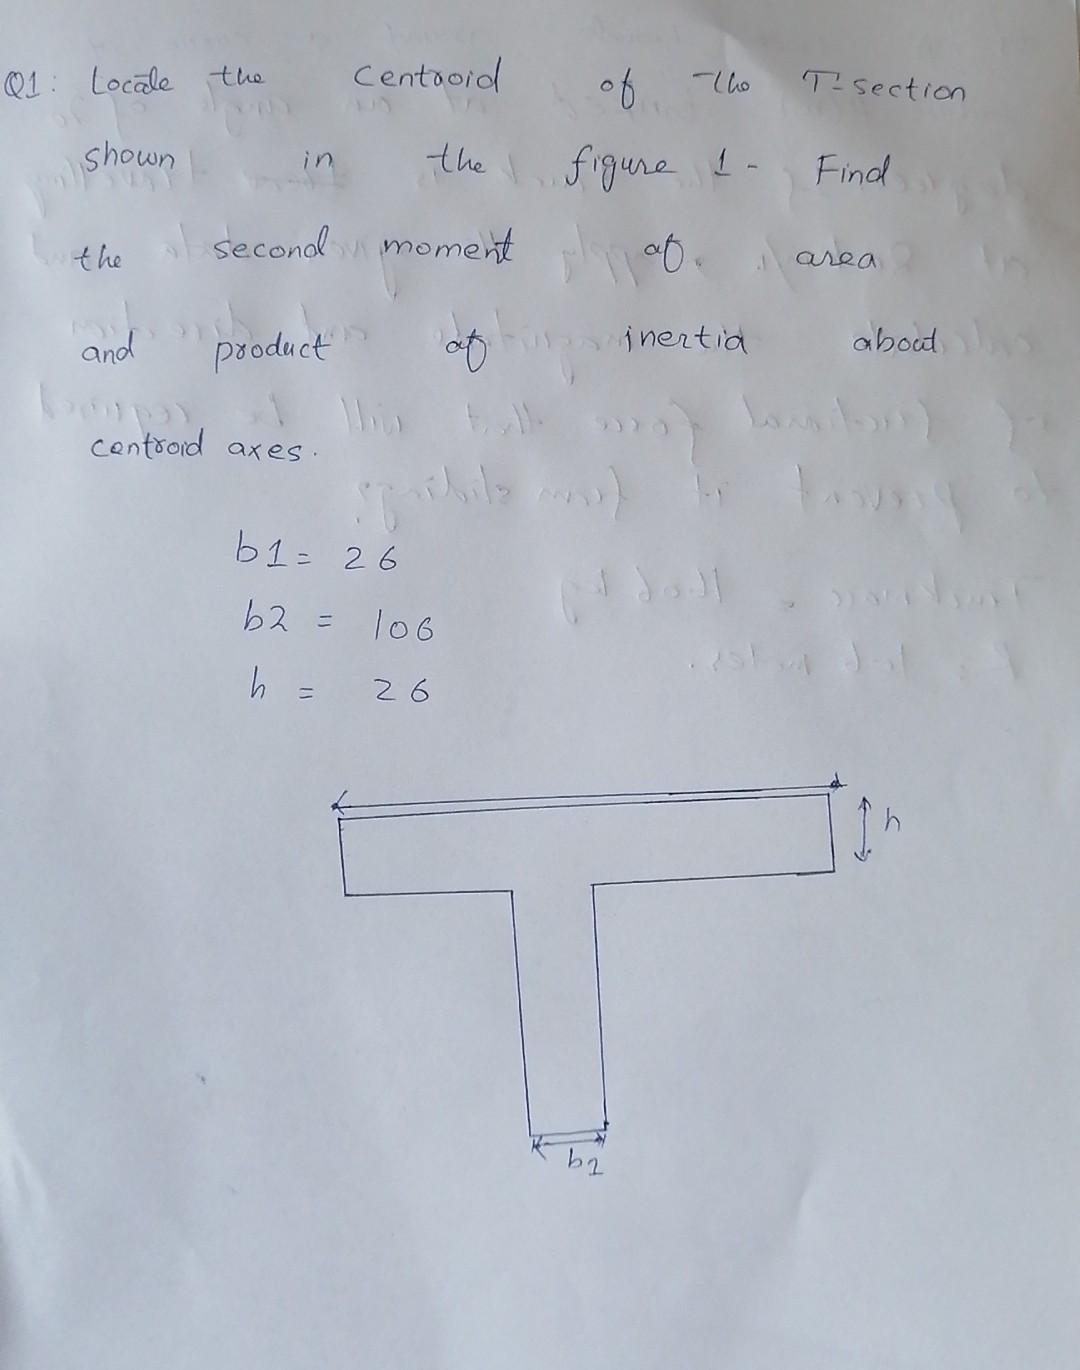 Q1: Locale the Centroid of the T-section
shown in the figure 1- Find
the second moment of area
and product of inertia about
centroid axes.
b1= 26
b2 = 106
h = 26
h
b2